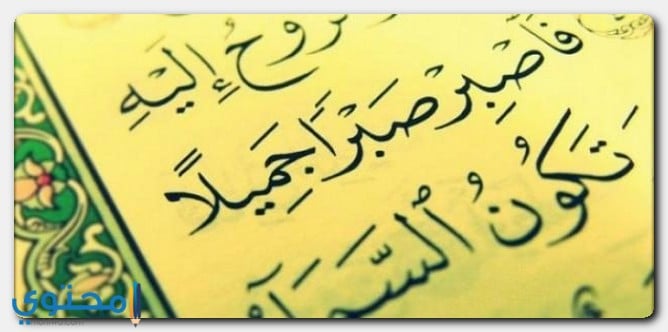 رُوحُ إِلَيْهِ
فَاصْبِرْ صَبْرًا جَمِيلًا
تَكُونُ السَّمَاءُ
محتوى